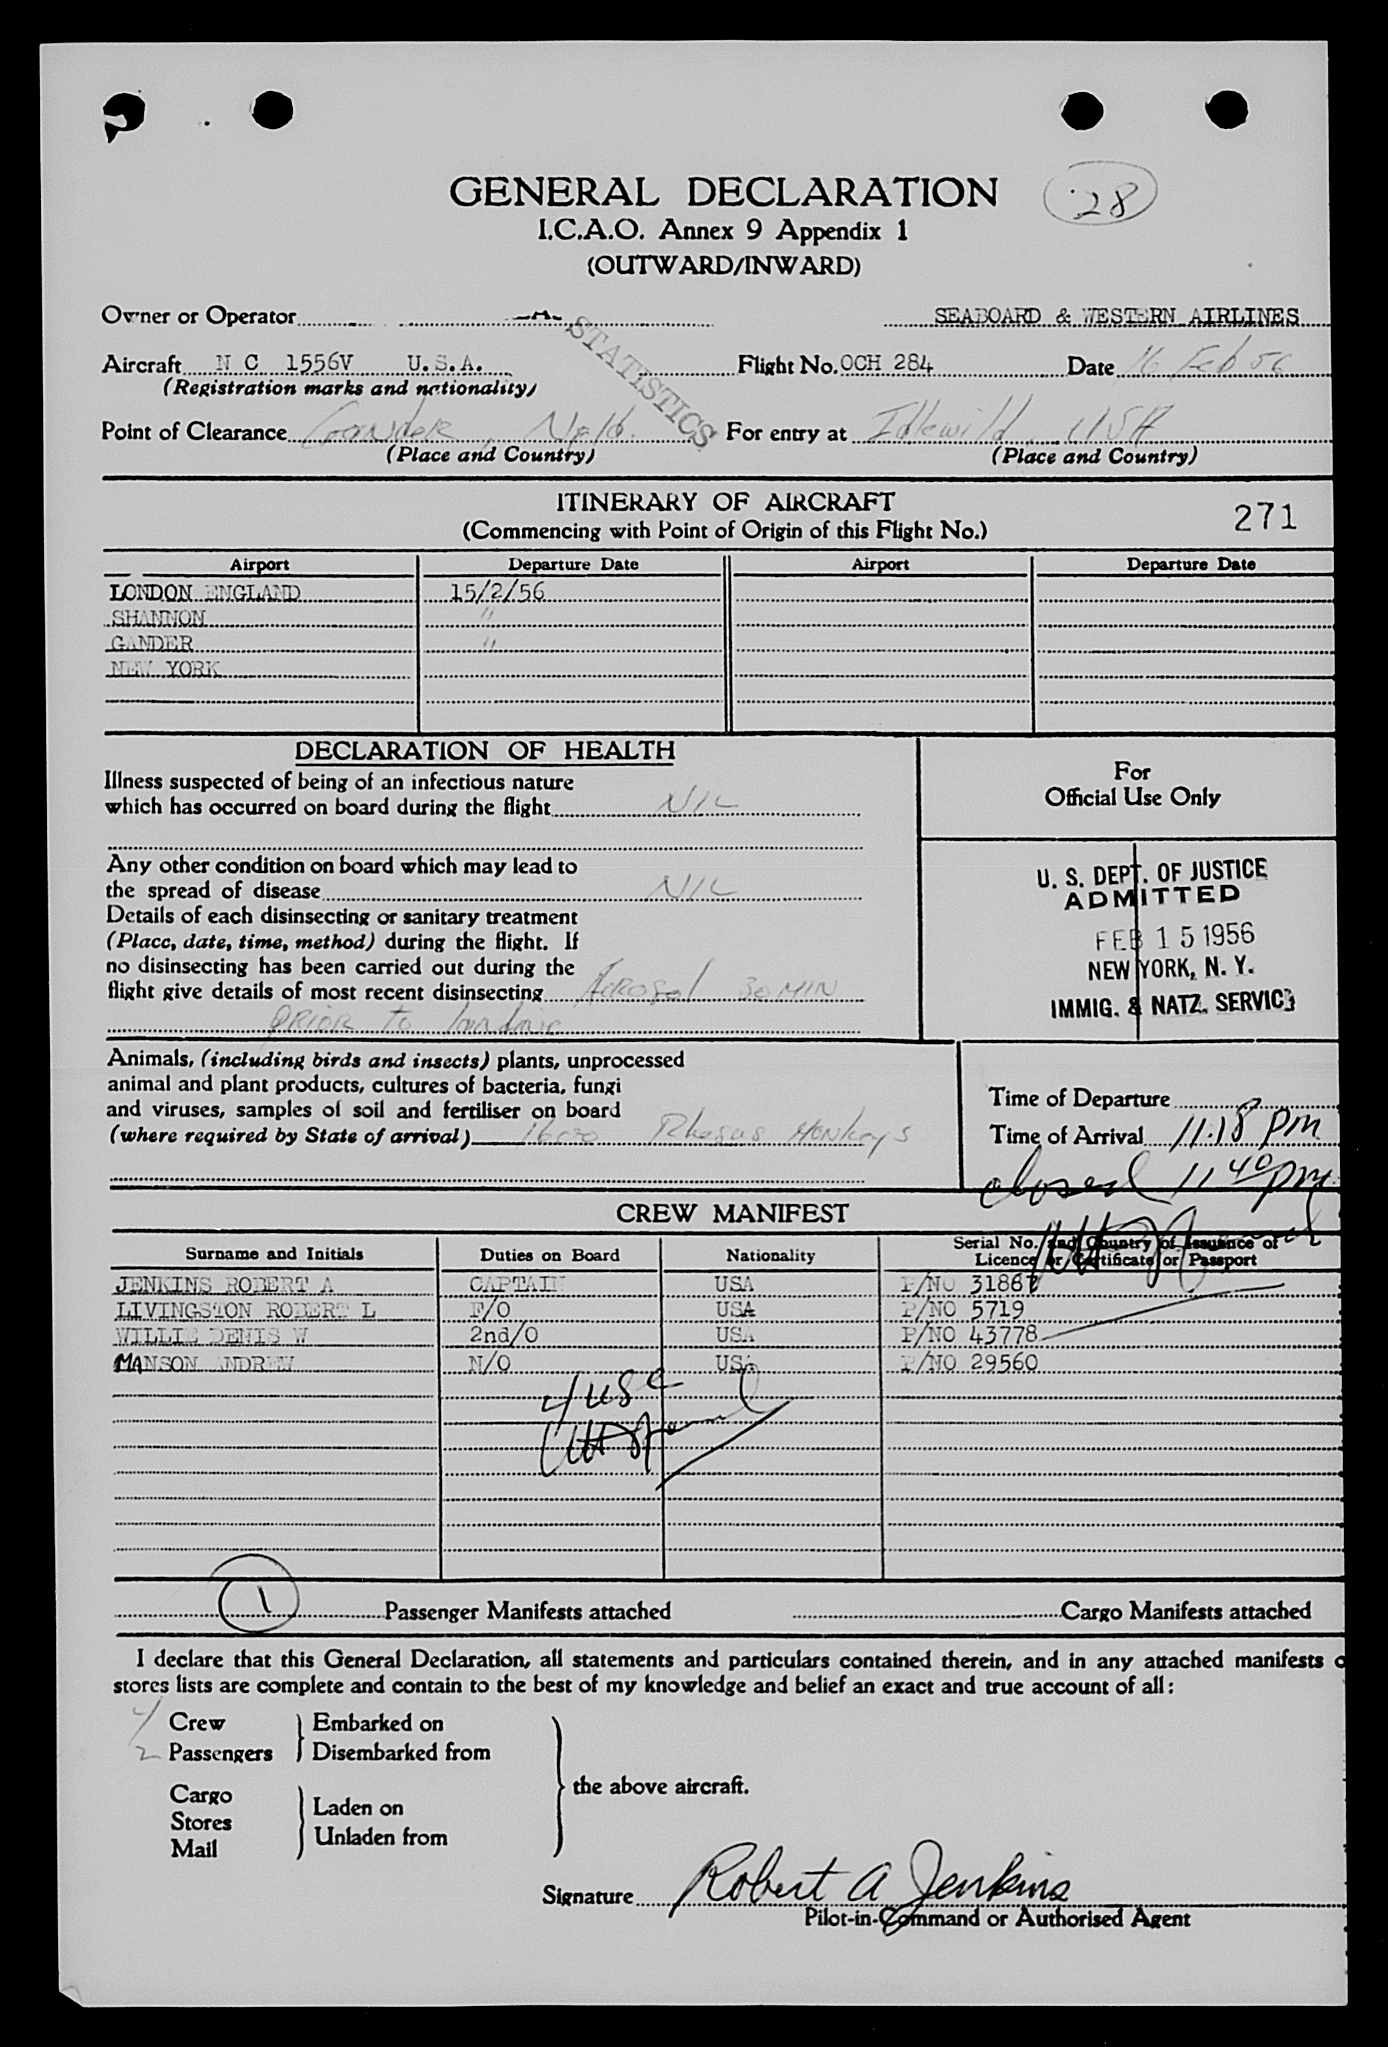 28
GENERAL DECLARATION
I.C.A.O. Annex 9 Appendix 1
(OUTWARD/INWARD)
Owner or Operator SEABOARD & WESTERN AIRLINES
STATISTICS
Aircraft N C 1556V U.S.A. Flight No. OCH 284 Date 16 Feb 56
(Registration marks and nationality)
Point of Clearance Gander, Nfld. For entry at Idlewild, USA
(Place and Country) (Place and Country)
ITINERARY OF AIRCRAFT
271
(Commencing with Point of Origin of this Flight No.)
Airport Departure Date Airport Departure Date
LONDON ENGLAND 15/2/56
SHANNON "
GANDER "
NEW YORK
DECLARATION OF HEALTH
Illness suspected of being of an infectious nature
which has occurred on board during the flight NIL
For
Official Use Only
Any other condition on board which may lead to
the spread of disease NIL
Details of each disinsecting or sanitary treatment
(Place, date, time, method) during the flight. If
no disinsecting has been carried out during the
flight give details of most recent disinsecting Aerosol 30 MIN
PRIOR to landing
U. S. DEPT. OF JUSTICE
ADMITTED
FEB 15 1956
NEW YORK, N. Y.
IMMIG. & NATZ. SERVICE
Animals, (including birds and insects) plants, unprocessed
animal and plant products, cultures of bacteria, fungi
and viruses, samples of soil and fertiliser on board
(where required by State of arrival) Rhesus Monkeys
Time of Departure
Time of Arrival 11.18 pm
closed 11 40 pm
CREW MANIFEST
Surname and Initials Duties on Board Nationality Serial No. and Country of Issuance of
Licence or Certificate or Passport
JENKINS ROBERT A CAPTAIN USA P/NO 31867
LIVINGSTON ROBERT L F/O USA P/NO 5719
WILLIS DENIS W 2nd/O USA P/NO 43778
MANSON ANDREW N/O USA P/NO 29560
4 USC
1 Passenger Manifests attached Cargo Manifests attached
I declare that this General Declaration, all statements and particulars contained therein, and in any attached manifests o
stores lists are complete and contain to the best of my knowledge and belief an exact and true account of all:
4 Crew Embarked on
2 Passengers Disembarked from
the above aircraft.
Cargo
Stores Laden on
Mail Unladen from
Signature Robert A Jenkins
Pilot-in-Command or Authorised Agent